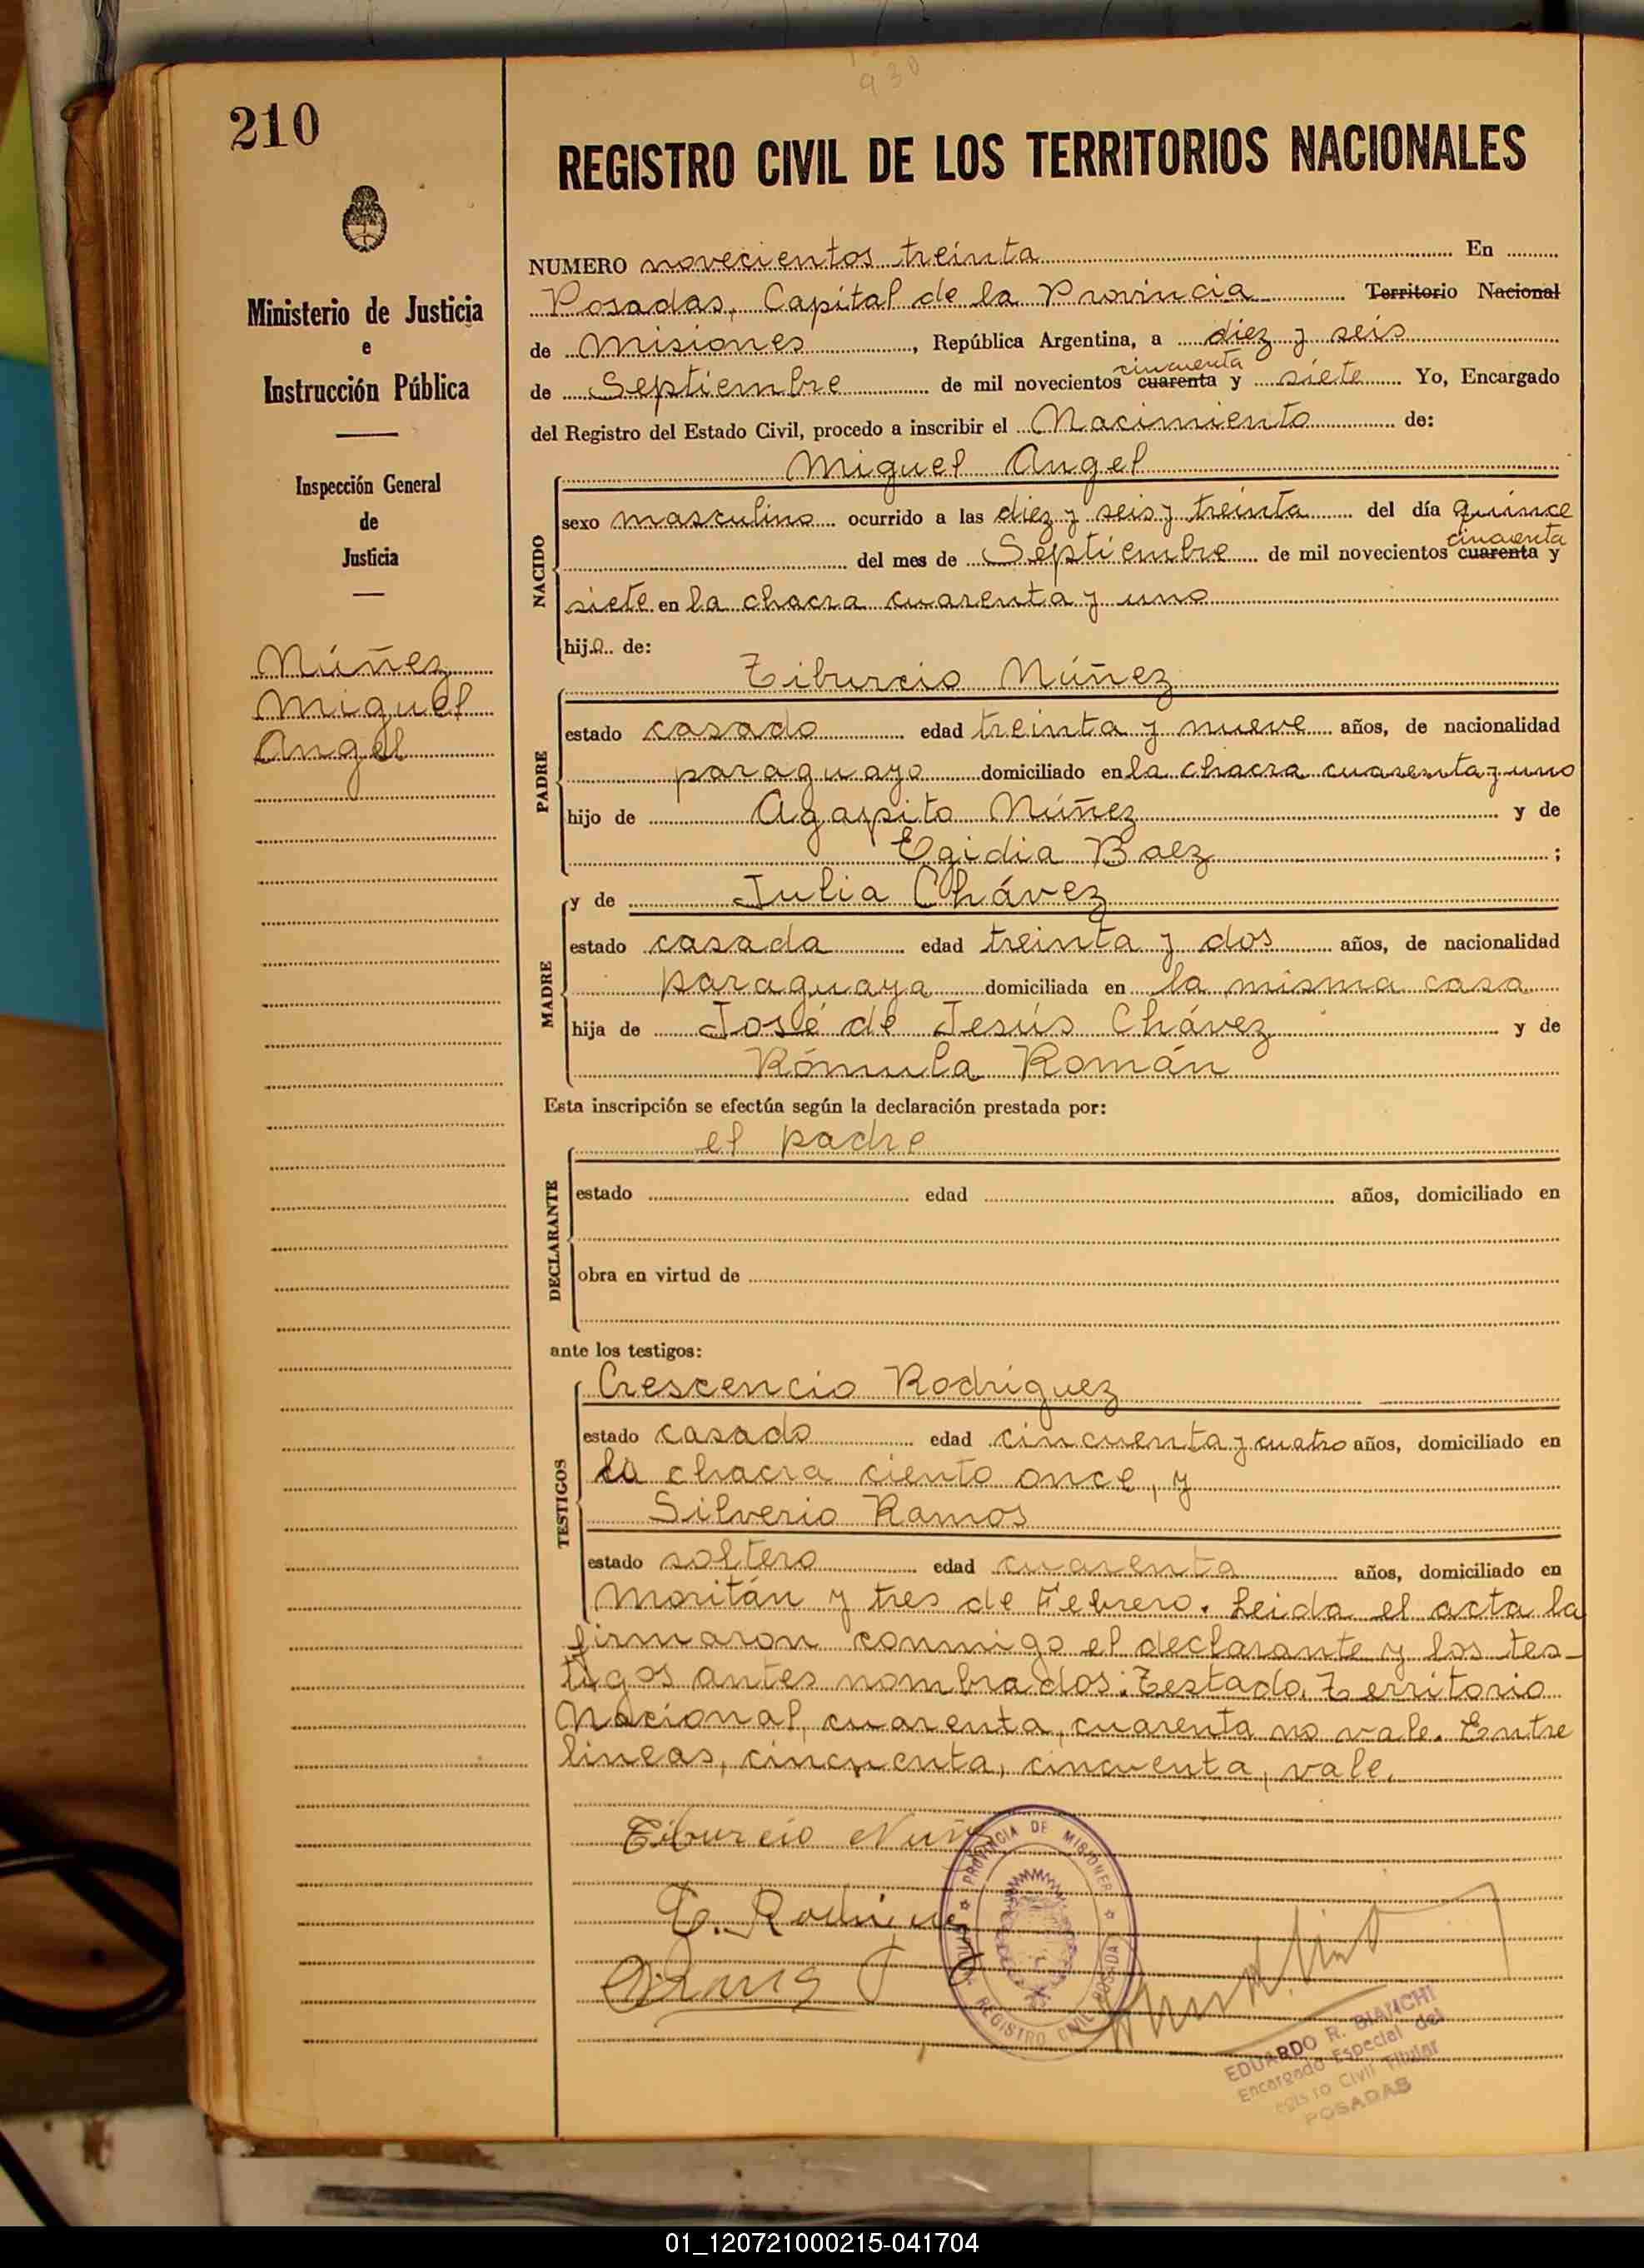 930
210
REGISTRO CIVIL DE LOS TERRITORIOS NACIONALES
Ministerio de Justicia
e
Instrucción Pública
Inspección General
de
Justicia
Núñez
Miguel
Angel
NUMERO novecientos treinta En
Posadas, Capital de la Provincia Territorio Nacional
de Misiones, República Argentina, a diez y seis
cincuenta
de Septiembre de mil novecientos cuarenta y siete Yo, Encargado
del Registro del Estado Civil, procedo a inscribir el Nacimiento de:
NACIDO
Miguel Angel
sexo masculino ocurrido a las diez y seis y treinta del día quince
cincuenta
del mes de Septiembre de mil novecientos cuarenta y
siete en la chacra cuarenta y uno
hijo de:
PADRE
Tiburcio Núñez
estado casado edad treinta y nueve años, de nacionalidad
paraguayo domiciliado en la chacra cuarenta y uno
hijo de Agapito Núñez y de
Egidia Baez ;
MADRE
y de Julia Chávez
estado casada edad treinta y dos años, de nacionalidad
paraguaya domiciliada en la misma casa
hija de José de Jesús Chávez y de
Rómula Román
Esta inscripción se efectúa según la declaración prestada por:
DECLARANTE
el padre
estado edad años, domiciliado en
obra en virtud de
ante los testigos:
TESTIGOS
Crescencio Rodríguez
estado casado edad cincuenta y cuatro años, domiciliado en
la chacra ciento once, y
Silverio Ramos
estado soltero edad cuarenta años, domiciliado en
Moritán y tres de Febrero. Leida el acta la
firmaron conmigo el declarante y los tes-
tigos antes nombrados. Testado, Territorio
Nacional, cuarenta, cuarenta no vale. Entre
lineas, cincuenta, cincuenta, vale.
Tiburcio Nuñez
PROVINCIA DE MISIONES
REGISTRO CIVIL POSADAS
EDUARDO R. BIANCHI
Encargado Especial del
egis ro Civil Titular
POSADAS
01_120721000215-041704